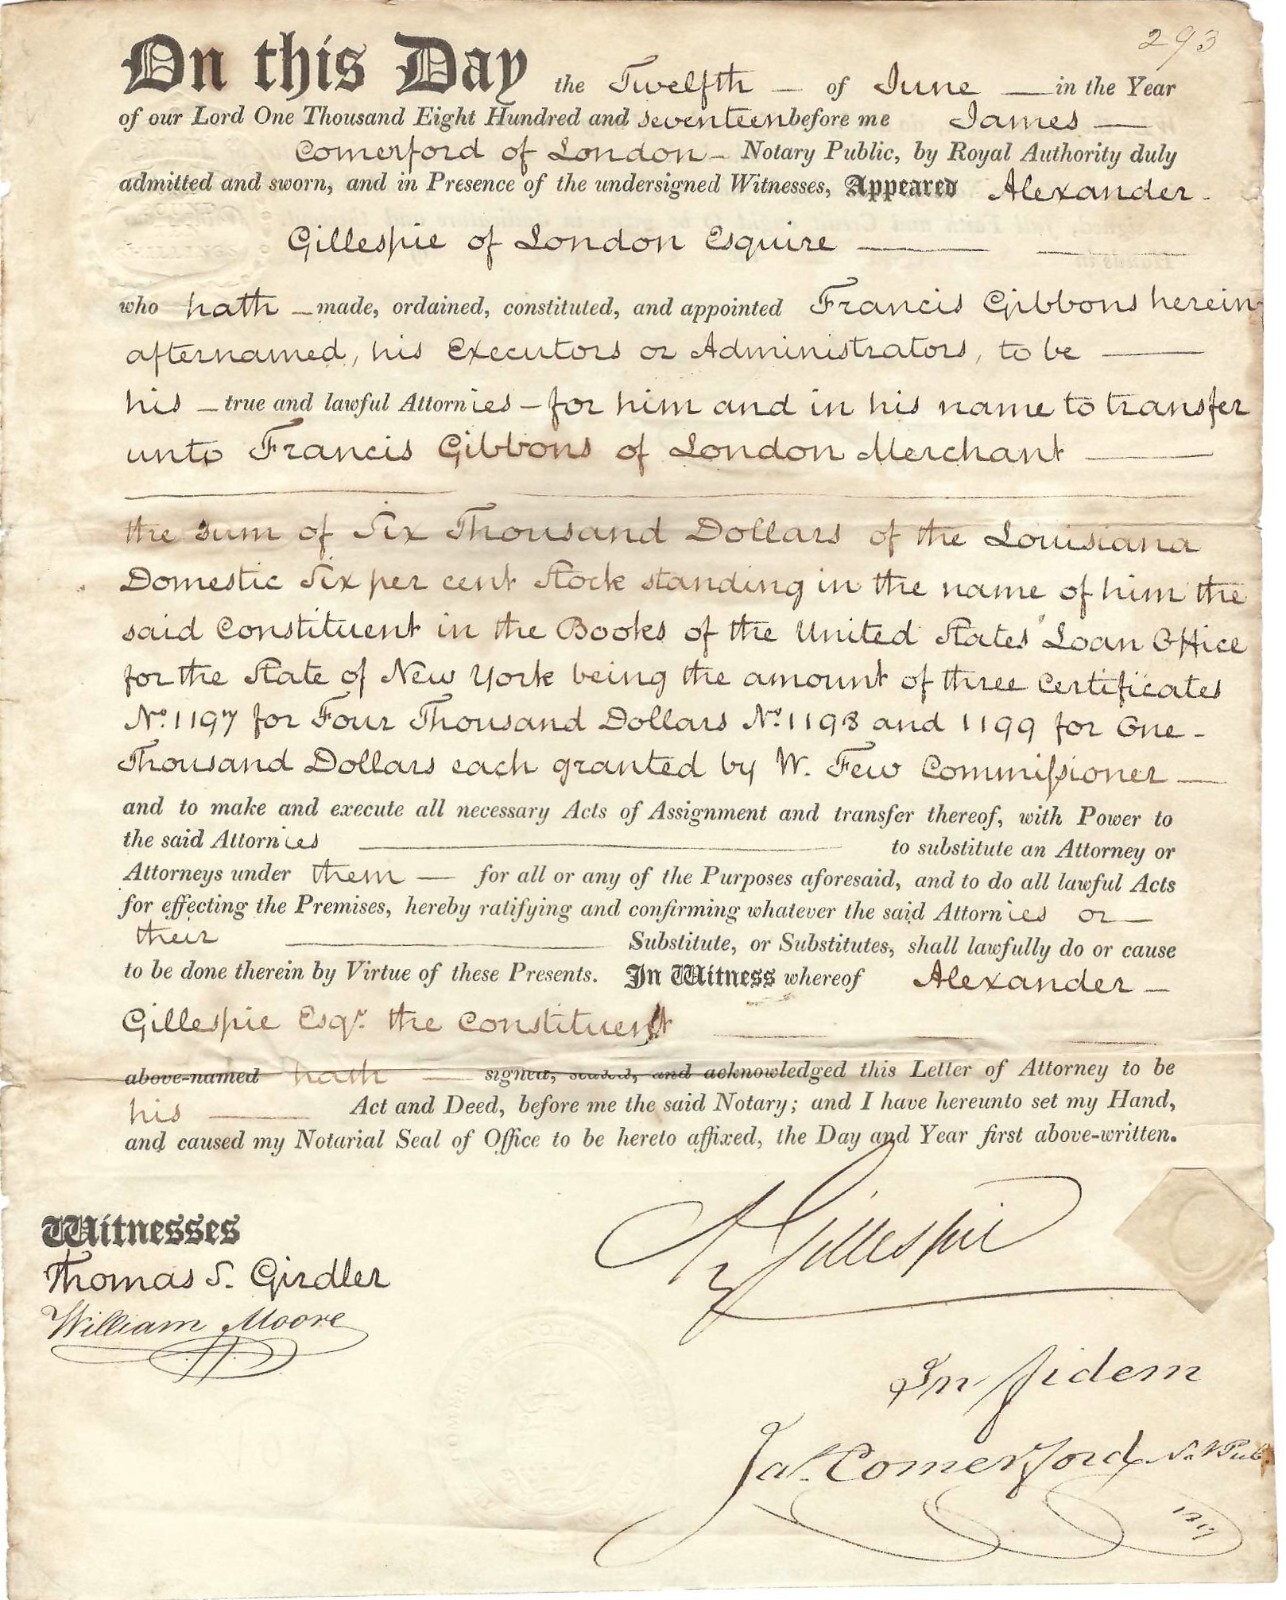 293
On this Day the Twelfth — of June — in the Year
of our Lord One Thousand Eight Hundred and seventeen before me James —
Comerford of London — Notary Public, by Royal Authority duly
admitted and sworn, and in Presence of the undersigned Witnesses, Appeared Alexander
Gillespie of London Esquire —
who hath — made, ordained, constituted, and appointed Francis Gibbons herein
afternamed, his Executors or Administrators, to be —
his — true and lawful Attornies — for him and in his name to transfer
unto Francis Gibbons of London Merchant —
the sum of Six Thousand Dollars of the Louisiana
Domestic Six per cent Stock standing in the name of him the
said Constituent in the Books of the United States' Loan Office
for the State of New York being the amount of three Certificates
No. 1197 for Four Thousand Dollars No. 1198 and 1199 for One -
Thousand Dollars each granted by W. Few Commissioner —
and to make and execute all necessary Acts of Assignment and transfer thereof, with Power to
the said Attornies — to substitute an Attorney or
Attorneys under them — for all or any of the Purposes aforesaid, and to do all lawful Acts
for effecting the Premises, hereby ratifying and confirming whatever the said Attornies or —
their — Substitute, or Substitutes, shall lawfully do or cause
to be done therein by Virtue of these Presents. In Witness whereof Alexander —
Gillespie Esqr. the Constituent
above-named hath — signed, sealed, and acknowledged this Letter of Attorney to be
his — Act and Deed, before me the said Notary; and I have hereunto set my Hand,
and caused my Notarial Seal of Office to be hereto affixed, the Day and Year first above-written.
A Gillespie
Witnesses
Thomas S. Girdler
William Moore
In fidem
Jas. Comerford Not Pub
1817